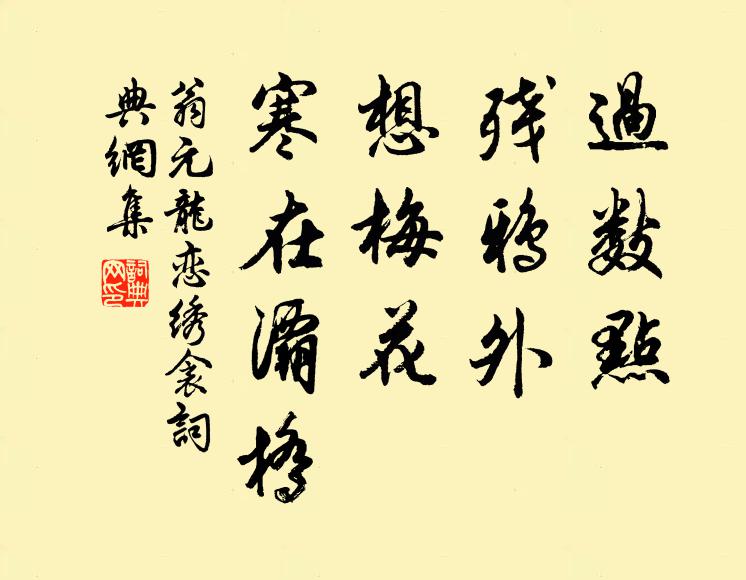 過數點
残鴉外
想梅花
寒在灞橋
翁元龍恋绣衾詞
典網集
詞典网印